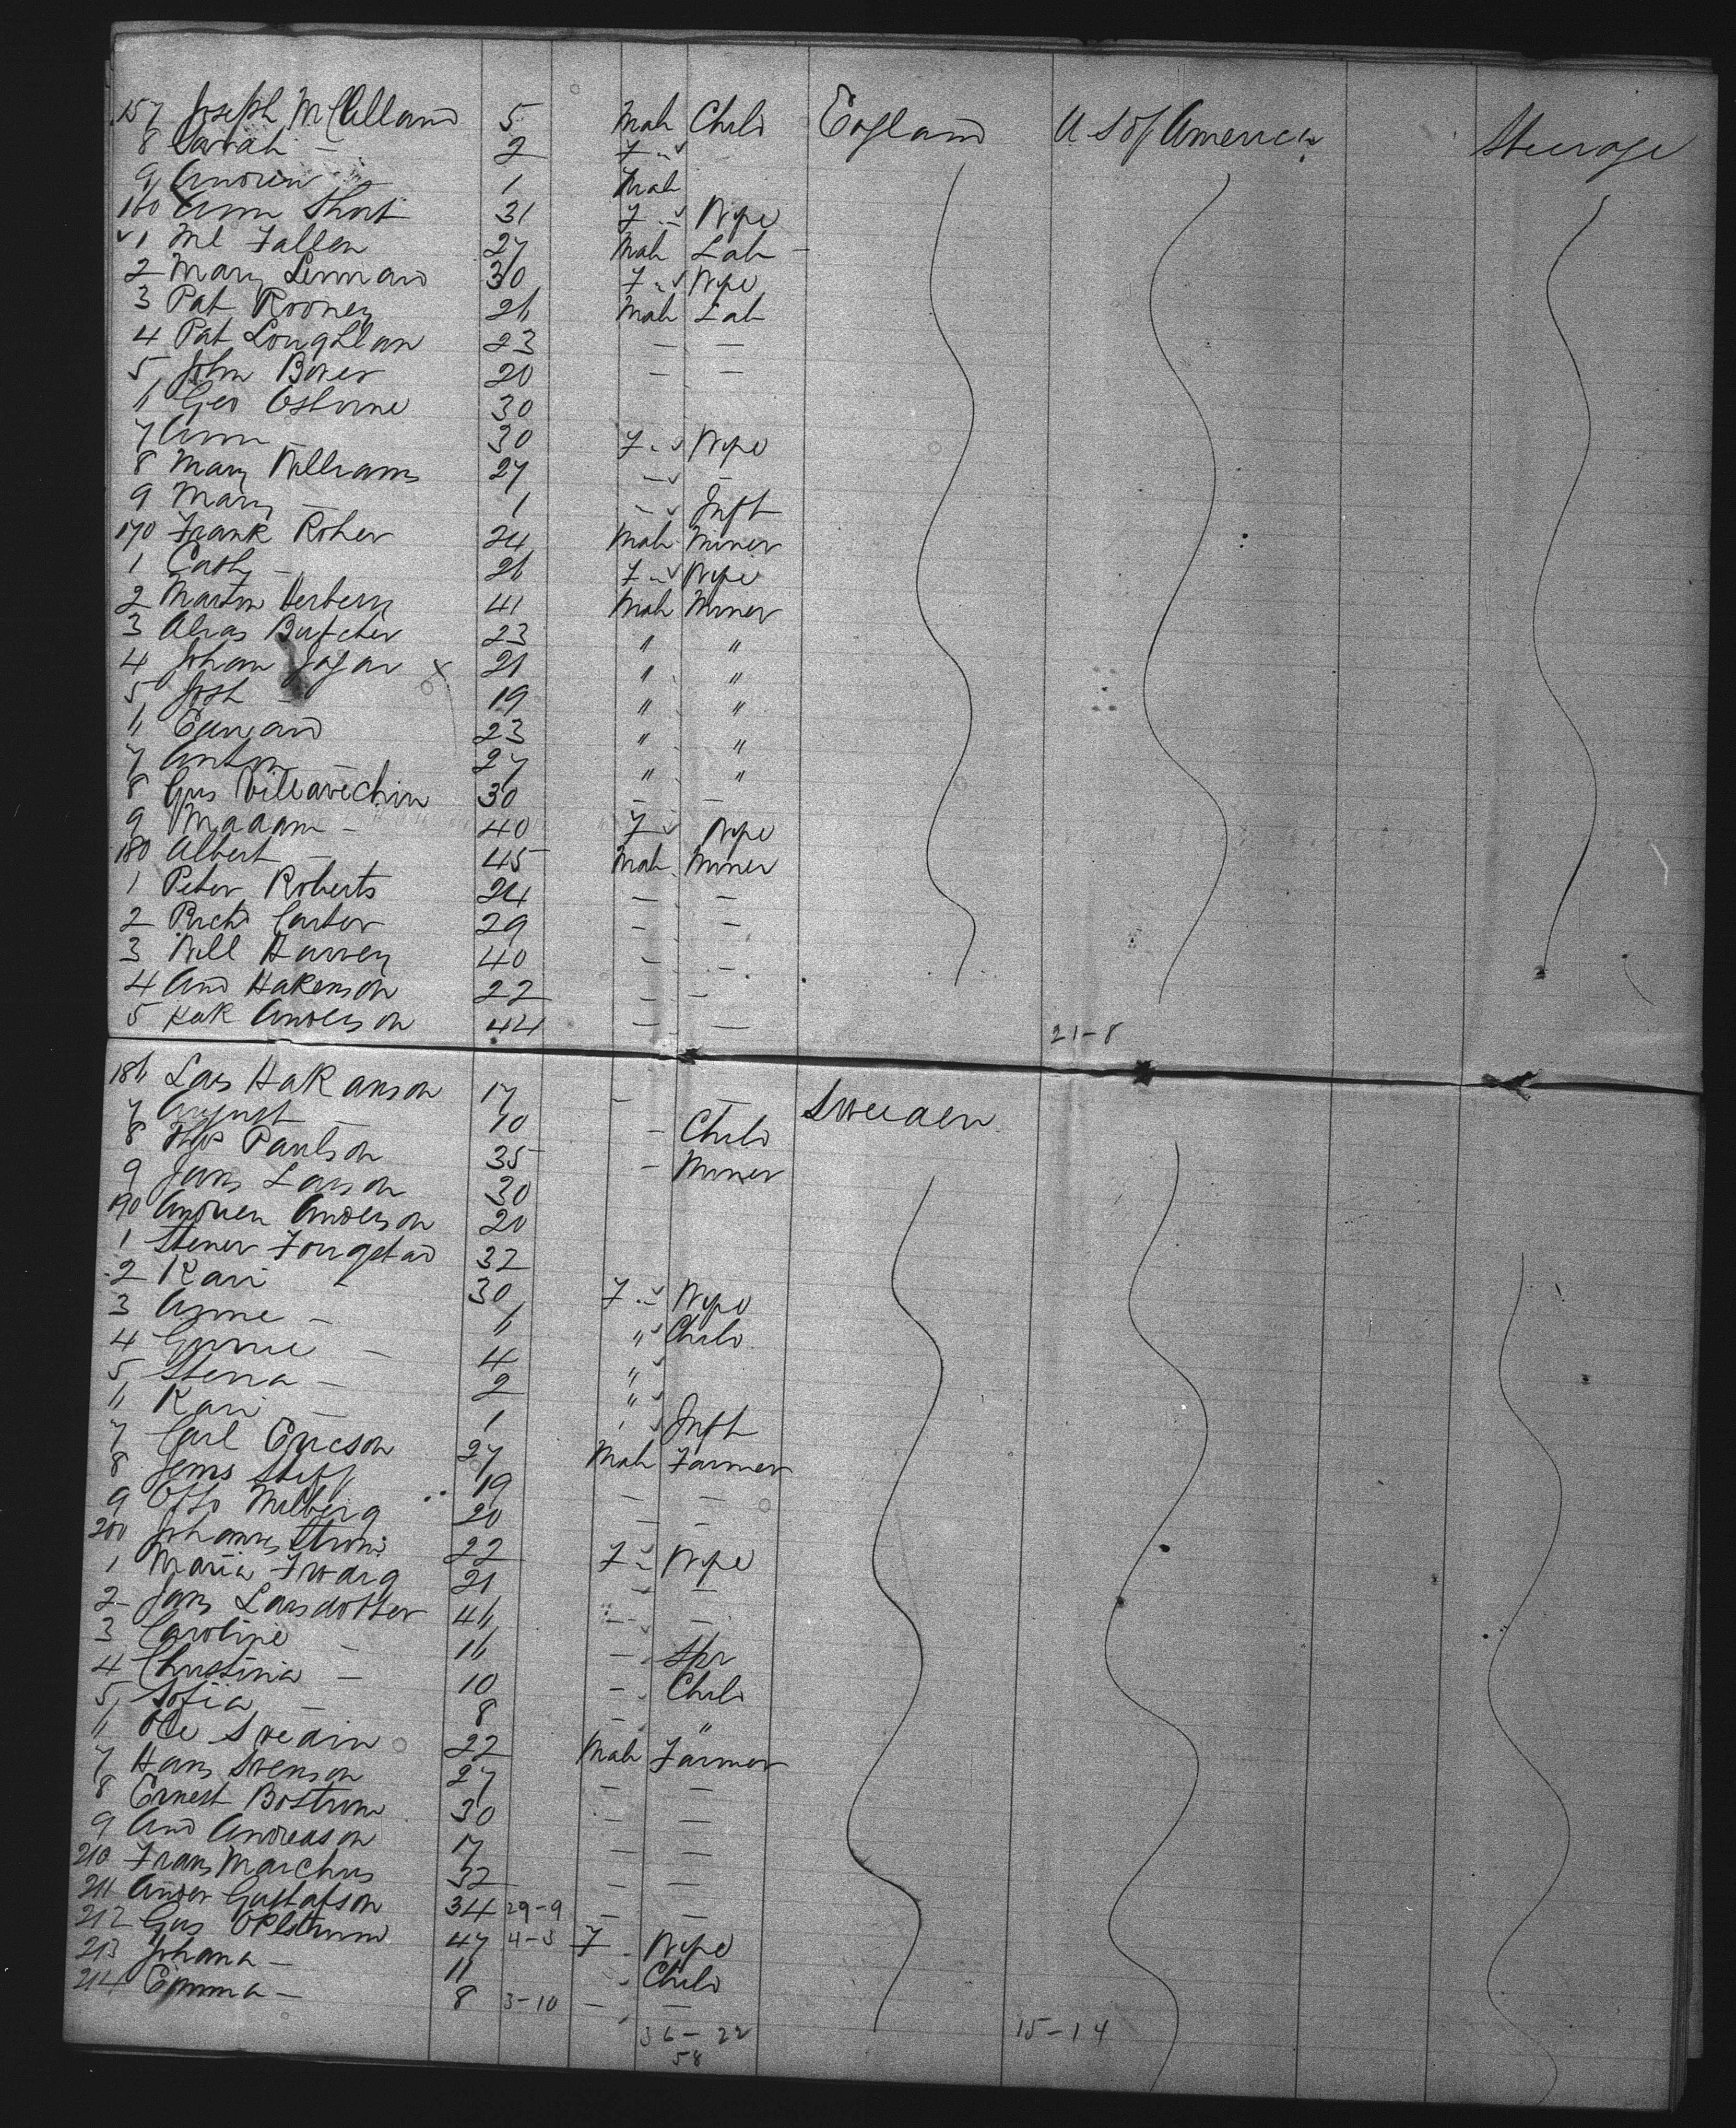 157 Joseph McClelland 5 Male Child England U S of America Steerage
8 Sarah — 2 F "
9 Andrew 1 Male
160 Ann Short 31 F " Wife
1 Ml Fallen 27 Male Lab —
2 Mary Lennard 30 F " Wife
3 Pat Rooney 26 Male Lab
4 Pat Loughlan 23 — —
5 John Bower 20 — —
6 Geo Osborne 30
7 Ann — 30 F " Wife
8 Mary Williams 27 — —
9 Mary — 1 — Inft
170 Frank Roher 24 Male Miner
1 Cath — 26 F " Wife
2 Martin Herberg 41 Male Miner
3 Alias Butcher 23 " "
4 Johan Jagar 21 " "
5 Josh — 19 " "
6 Edward 23 " "
7 Anton — 27 " "
8 Gus Villavechin 30 — —
9 Madam — 40 F Wife
180 Albert — 45 Male Miner
1 Peter Roberts 24 — —
2 Richd Carter 29 — —
3 Will Harvey 40 — —
4 And Hakenson 22 — —
5 Anderson 44 — — 21-8
186 Lars Hakanson 17 — — Sweden
7 August — 10 — Child
8 Paulson 35 — Miner
9 Jans Larson 30
190 Andrew Anderson 20
1 Stener Fougstad 32
2 Kari — 30 F " Wife
3 Anne — 6 " Child
4 Gunnie — 4 "
5 Stena — 2 "
6 Kari — 1 " Inft
7 Carl Ericson 27 Male Farmer
8 Jems Steff 19 — —
9 Otto Milberg 20 — —
200 Johannes Strom 22 F " Wife
1 Maria Fwarg 21 " —
2 Jans Larsdotter 46 — —
3 Caroline — 16 — Spr
4 Christina — 10 — Child
5 Sofia — 8 — "
6 Ole Swedin 22 Male Farmer
7 Hans Swenson 27 — —
8 Ernest Bostrom 30 — —
9 And Andreason 17 — —
210 Frans Marchus 32 — —
211 Ander Gustafson 34 29-9 — —
212 Gus 47 4-5 F Wife
213 Johana — 11 " Child
214 Emma — 8 3-10 — —
36-22 15-14
58